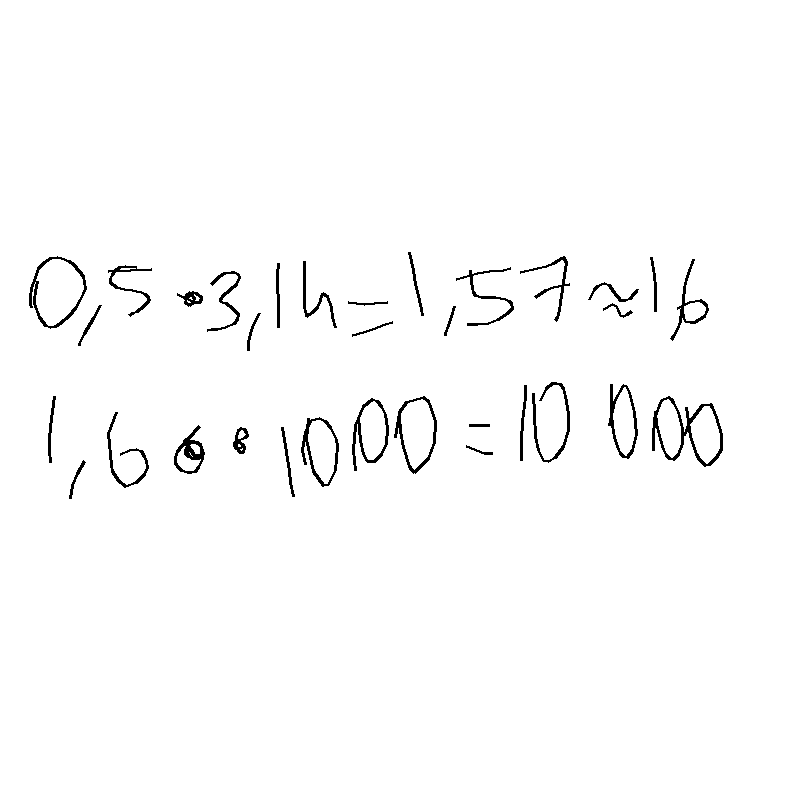 0,5 • 3,14 = 1,57 ≈ 1,6
1,6 • 1000 = 10 000